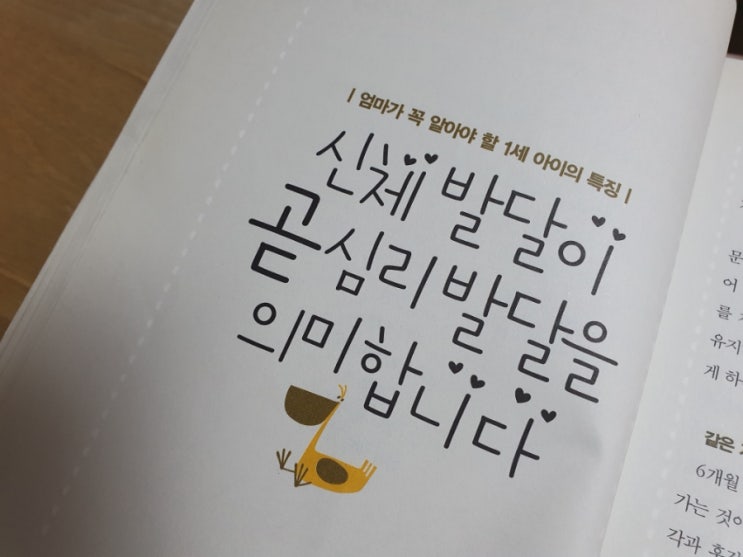 | 엄마가 꼭 알아야 할 1세 아이의 특징 |
신체 발달이
곧 심리 발달을
의미합니다
문
어
를
유지
게 하
같은
6개월
가는 것이
각과 혼